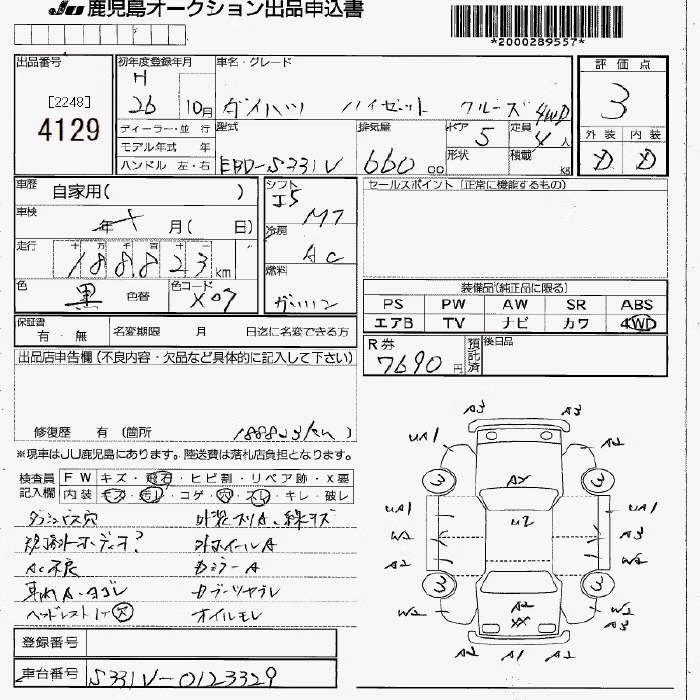 JU 鹿児島オークション出品申込書
*2000289557*
出品番号
[2248]
4129
初年度登録年月
H
26 10月
車名・グレード
ダイハツ ハイゼット クルーズ 4WD
評価点
3
外装 内装
D D
ディーラー・並行
モデル年式 年
ハンドル 左・右
型式
EBD-S331V
排気量
660 cc
ドア
5
定員
4人
形状
積載
kg
車歴
自家用( )
車検
年 月( 日)
走行
十 万 千 百 十 一
188823km
色
黒 色替
色コード
X07
シフト
I5
MT
冷房
AC
燃料
ガソリン
セールスポイント(正常に機能するもの)
装備品(純正品に限る)
PS PW AW SR ABS
エアB TV ナビ カワ 4WD
保証書
有・無
名変期限 月 日迄に名変できる方
R券
7690円
預託済
後日品
出品店申告欄(不良内容・欠品など具体的に記入して下さい)
修復歴 有 (箇所 188823km)
※現車はJU鹿児島にあります。陸送費は落札店負担となります。
検査員
記入欄
FW キズ・飛石・ヒビ割・リペア跡・X要
内装 キズ・汚レ・コゲ・穴・スレ・キレ・破レ
ダッシュビス穴
外装スリA、線キズ
規格外オーディオ?
外ホイールA
AC不良
カブラーA
車内A・ヨゴレ
ヘッドレスト1ケ欠
オイルモレ
登録番号
車台番号 S331V-0123329
A3 A3
UA1 A2
3 3
AY
UA1 U2 UA1
W2 A3
A2 W2
3 3
W2 A2 W2
XX A3
A2 A1 A2